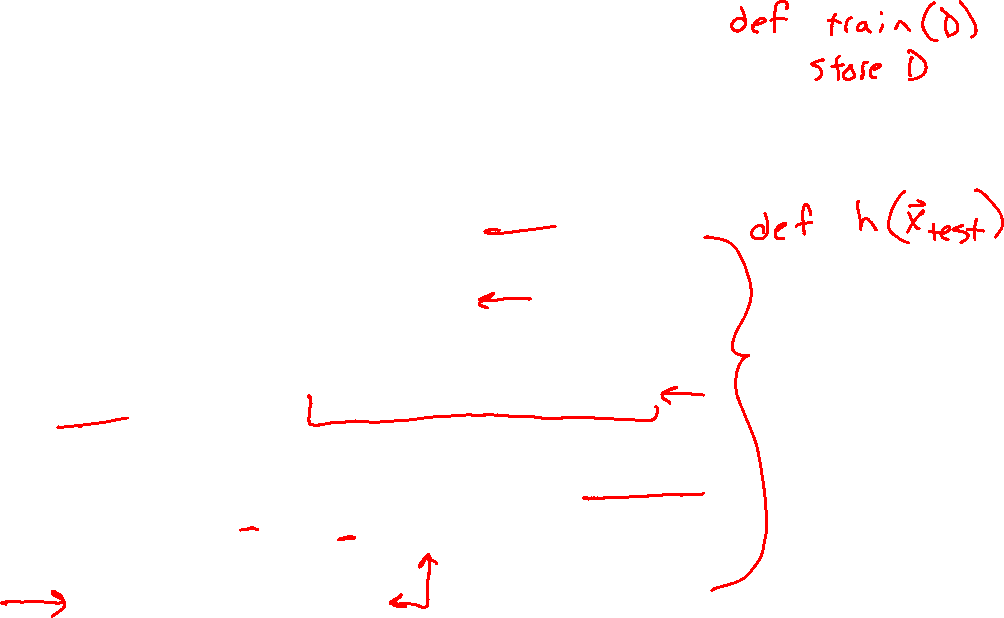 def train(D)
store D
def h(x⃗_test)